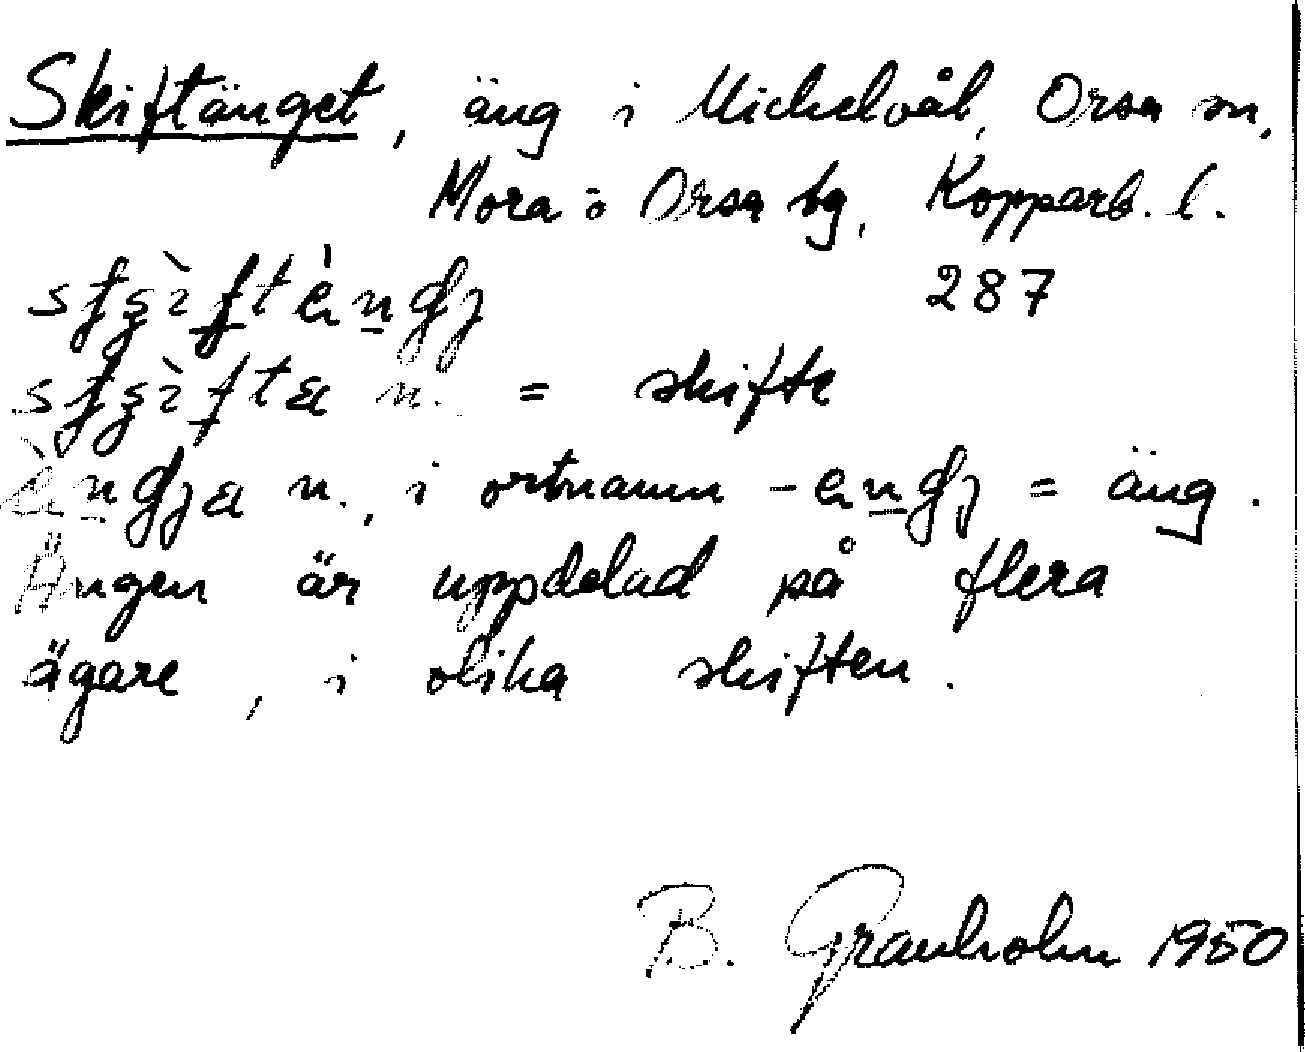 Skiftänget, äng i Mickelvål, Orsa sn,
Mora o Orsa tg, Kopparb. l.
287
n. = skifte
n., i ortnamn = äng.
Ängen är uppdelad på flera
ägare, i olika skiften.
B. Granholm 1950